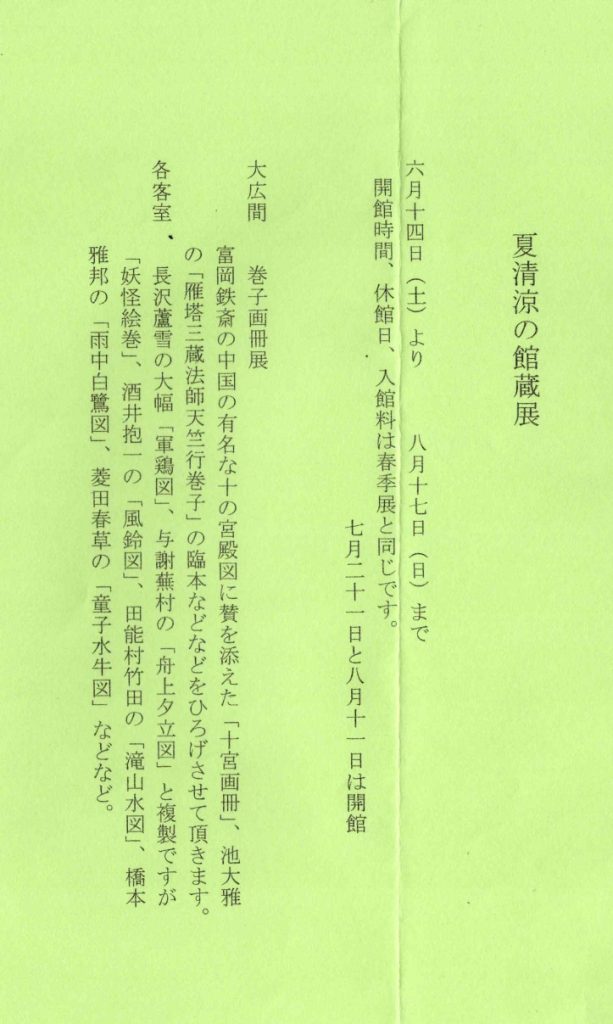 夏清涼の館蔵展
六月十四日（土）より　　八月十七日（日）まで
開館時間、休館日、入館料は春季展と同じです。
七月二十一日と八月十一日は開館
大広間　巻子画冊展
富岡鉄斎の中国の有名な十の宮殿図に賛を添えた「十宮画冊」、池大雅
の「雁塔三蔵法師天竺行巻子」の臨本などなどをひろげさせて頂きます。
各客室、長沢蘆雪の大幅「軍鶏図」、与謝蕪村の「舟上夕立図」と複製ですが
「妖怪絵巻」、酒井抱一の「風鈴図」、田能村竹田の「滝山水図」、橋本
雅邦の「雨中白鷺図」、菱田春草の「童子水牛図」などなど。